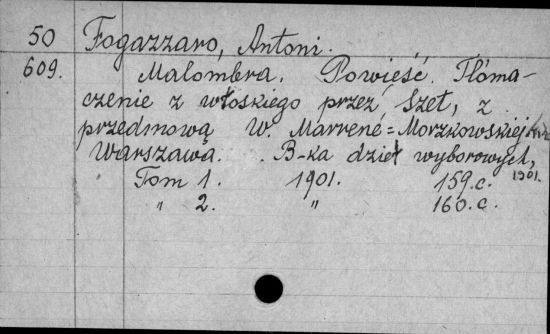 50 Fogazzaro, Antoni.
609. Malombra. Powieść. Tłóma-
czenie z włoskiego przez Szet, z
przedmową W. Marrené=Morzkowskiej
Warszawa. B-ka dzieł wyborowych,
1901.
Tom 1. 1901. 159.c.
" 2. " 160.c.